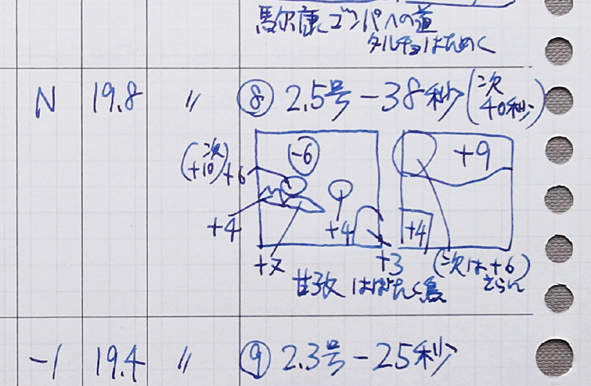 馬尔康ゴンパへの道
タルチョはためく
N 19.8 〃 ⑧ 2.5号-38秒(次40秒)
-6
(次+10) +6
+9
+4
+4
+4
+3
(次は+6)
甘孜 はばたく鳥
-1 19.4 〃 ⑨ 2.3号-25秒